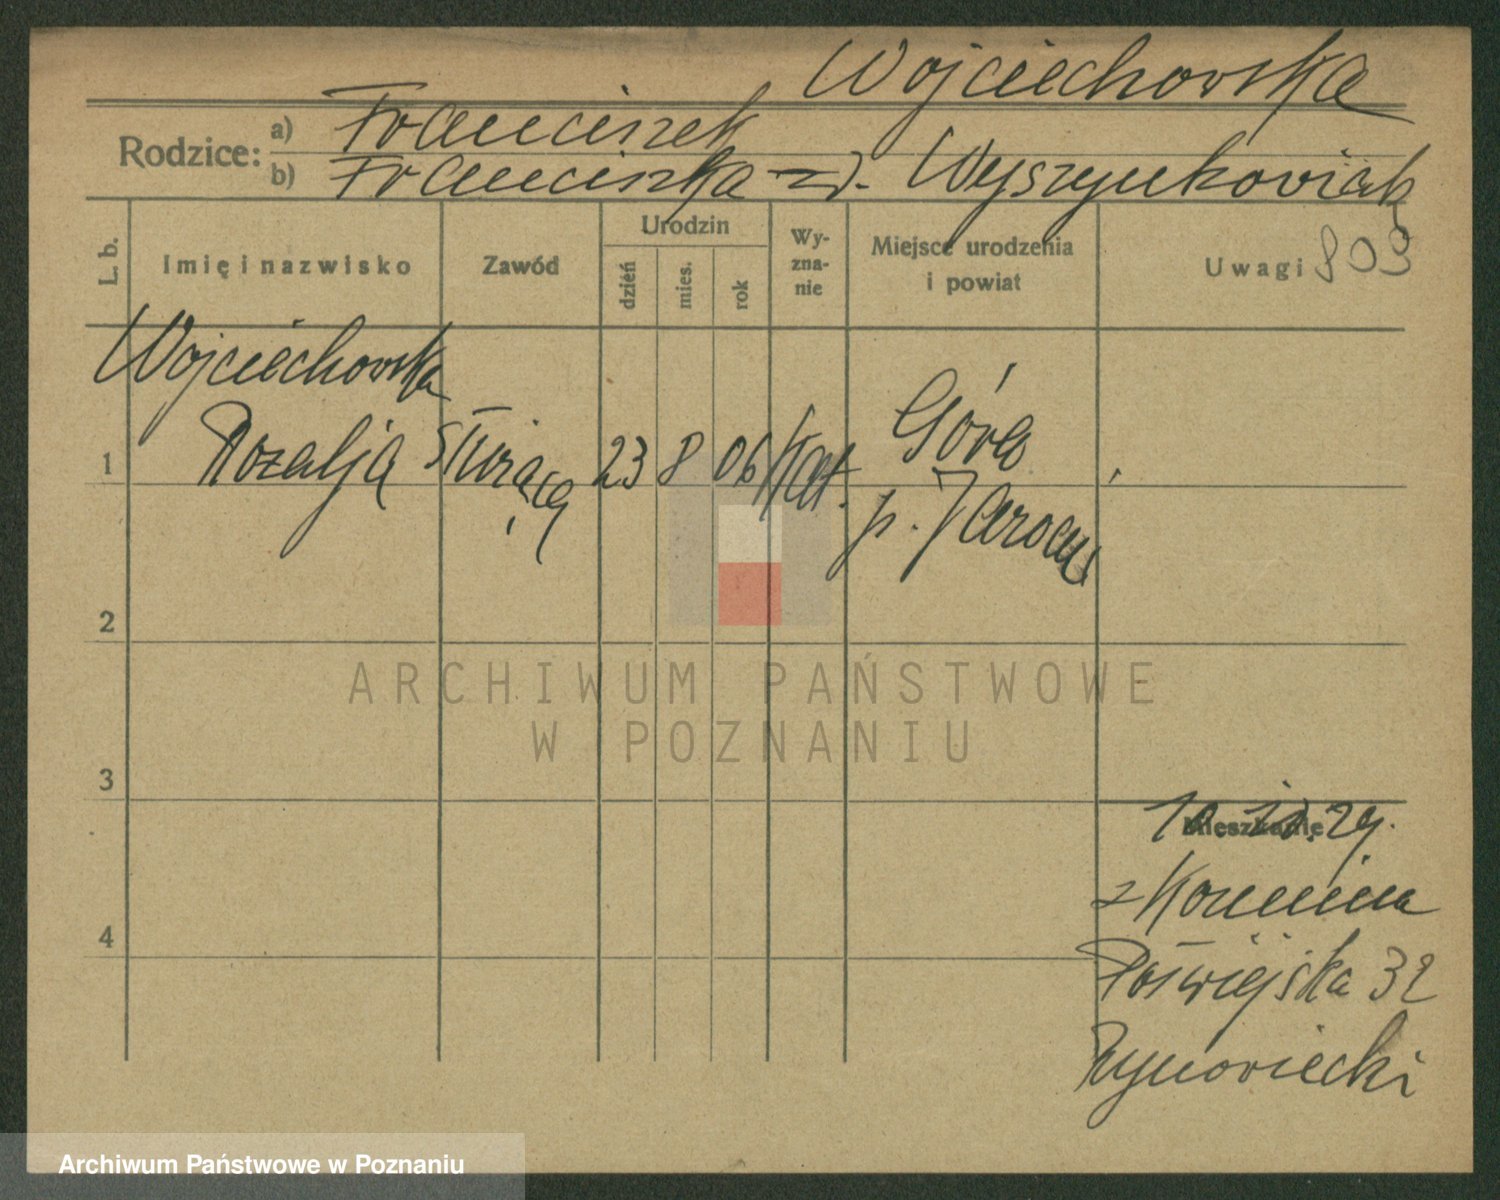 Wojciechowska
Rodzice:
a) Franciszek
b) Franciszka z d. Wyszynkowiak
L. b.
Imię i nazwisko
Zawód
Urodzin
dzień
mies.
rok
Wy-
zna-
nie
Miejsce urodzenia
i powiat
Uwagi 809
Wojciechowska
1 Rozalja służąca 23 8 06 kat. Góra
p. Jarocin
2
3
4
Mieszkanie
29.
z Koźmina
32
ARCHIWUM PAŃSTWOWE
W POZNANIU
Archiwum Państwowe w Poznaniu